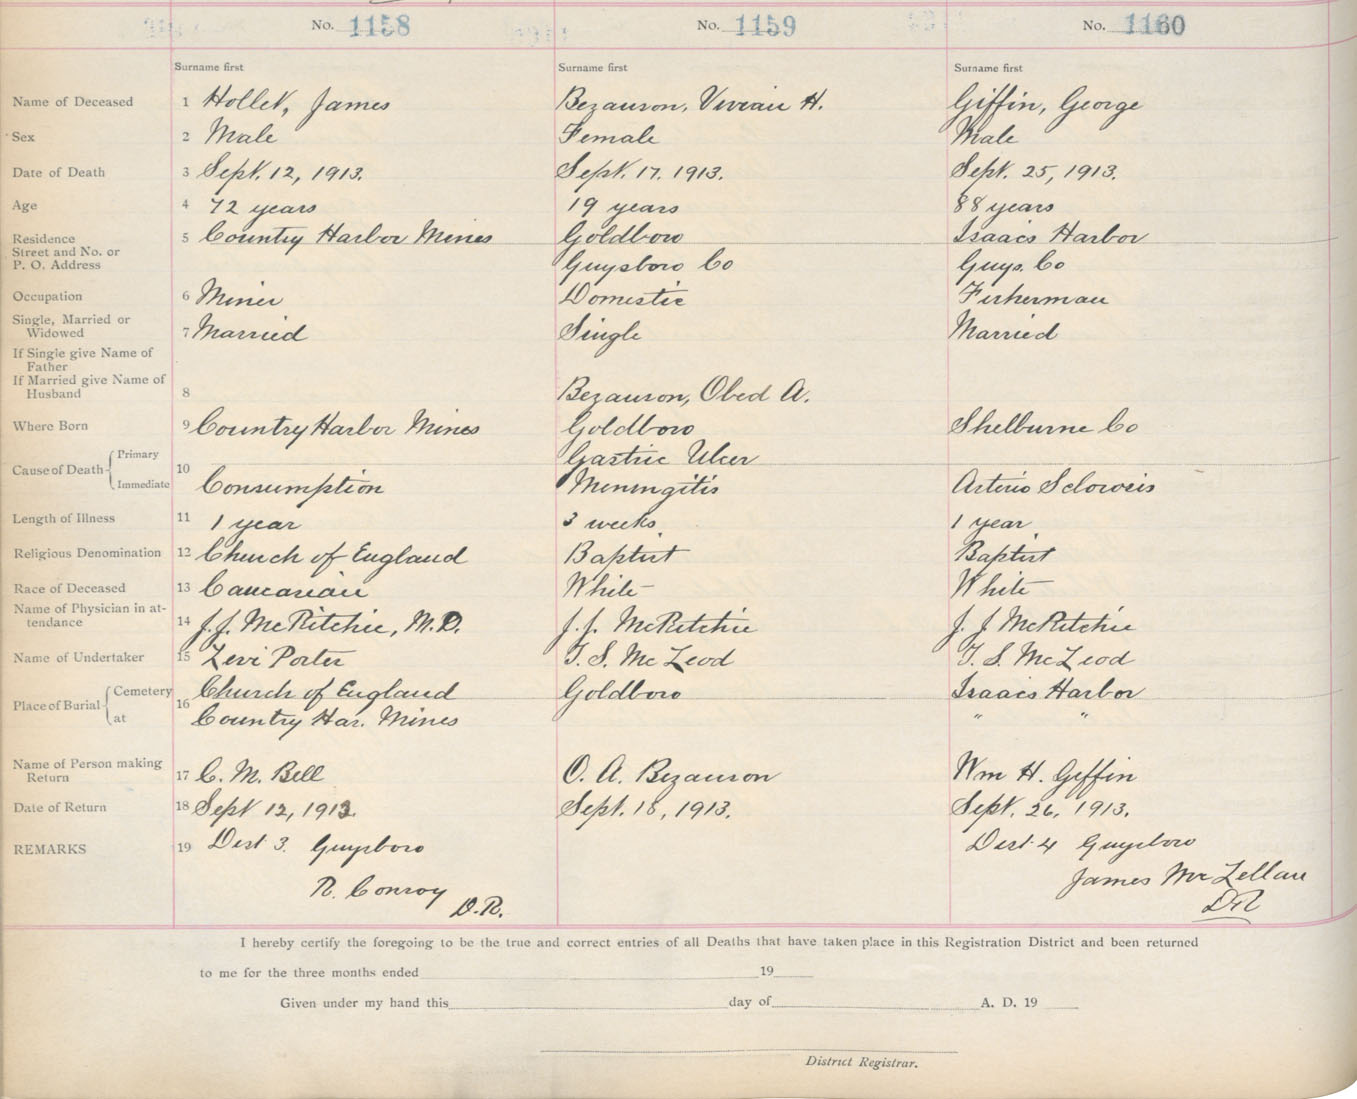 No. 1158 No. 1159 No. 1160
Surname first Surname first Surname first
Name of Deceased 1 Hollet, James Bezanson, Vivian H. Giffin, George
Sex 2 Male Female Male
Date of Death 3 Sept. 12, 1913. Sept. 17. 1913. Sept. 25, 1913.
Age 4 72 years 19 years 88 years
Residence 5 Country Harbor Mines Goldboro Isaacs Harbor
Street and No. or
P. O. Address Guysboro Co Guys. Co
Occupation 6 Miner Domestic Fisherman
Single, Married or
Widowed 7 Married Single Married
If Single give Name of
Father
If Married give Name of
Husband 8 Bezanson, Obed A.
Where Born 9 Country Harbor Mines Goldboro Shelburne Co
Primary Gastric Ulcer
Cause of Death 10
Immediate Consumption Meningitis Arterio Sclorosis
Length of Illness 11 1 year 3 weeks 1 year
Religious Denomination 12 Church of England Baptist Baptist
Race of Deceased 13 Caucasian White White
Name of Physician in at-
tendance 14 J. J. McRitchie, M.D. J. J. McRitchie J. J McRitchie
Name of Undertaker 15 Levi Porter T. S. McLeod T. S. McLeod
Cemetery Church of England Goldboro Isaacs Harbor
Place of Burial 16
at Country Har. Mines " "
Name of Person making
Return 17 C. M. Bell O. A. Bezanson Wm H. Giffin
Date of Return 18 Sept 12, 1913. Sept. 18, 1913. Sept. 26, 1913.
REMARKS 19 Dist 3. Guysboro Dist. 4 Guysboro
R. Conroy James McLellan
D.R. DR
I hereby certify the foregoing to be the true and correct entries of all Deaths that have taken place in this Registration District and been returned
to me for the three months ended 19
Given under my hand this day of A. D. 19
District Registrar.